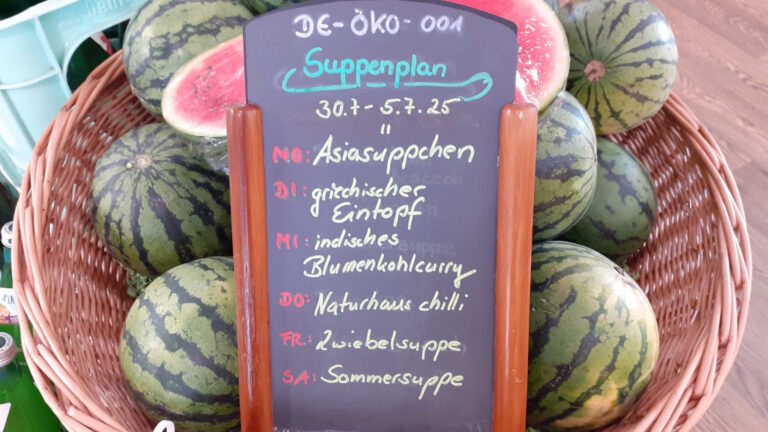 DE-ÖKO-001
Suppenplan
30.7-5.7.25
MO: Asiasüppchen
DI: griechischer
Eintopf
MI: indisches
Blumenkohlcurry
DO: Naturhaus chilli
FR: Zwiebelsuppe
SA: Sommersuppe